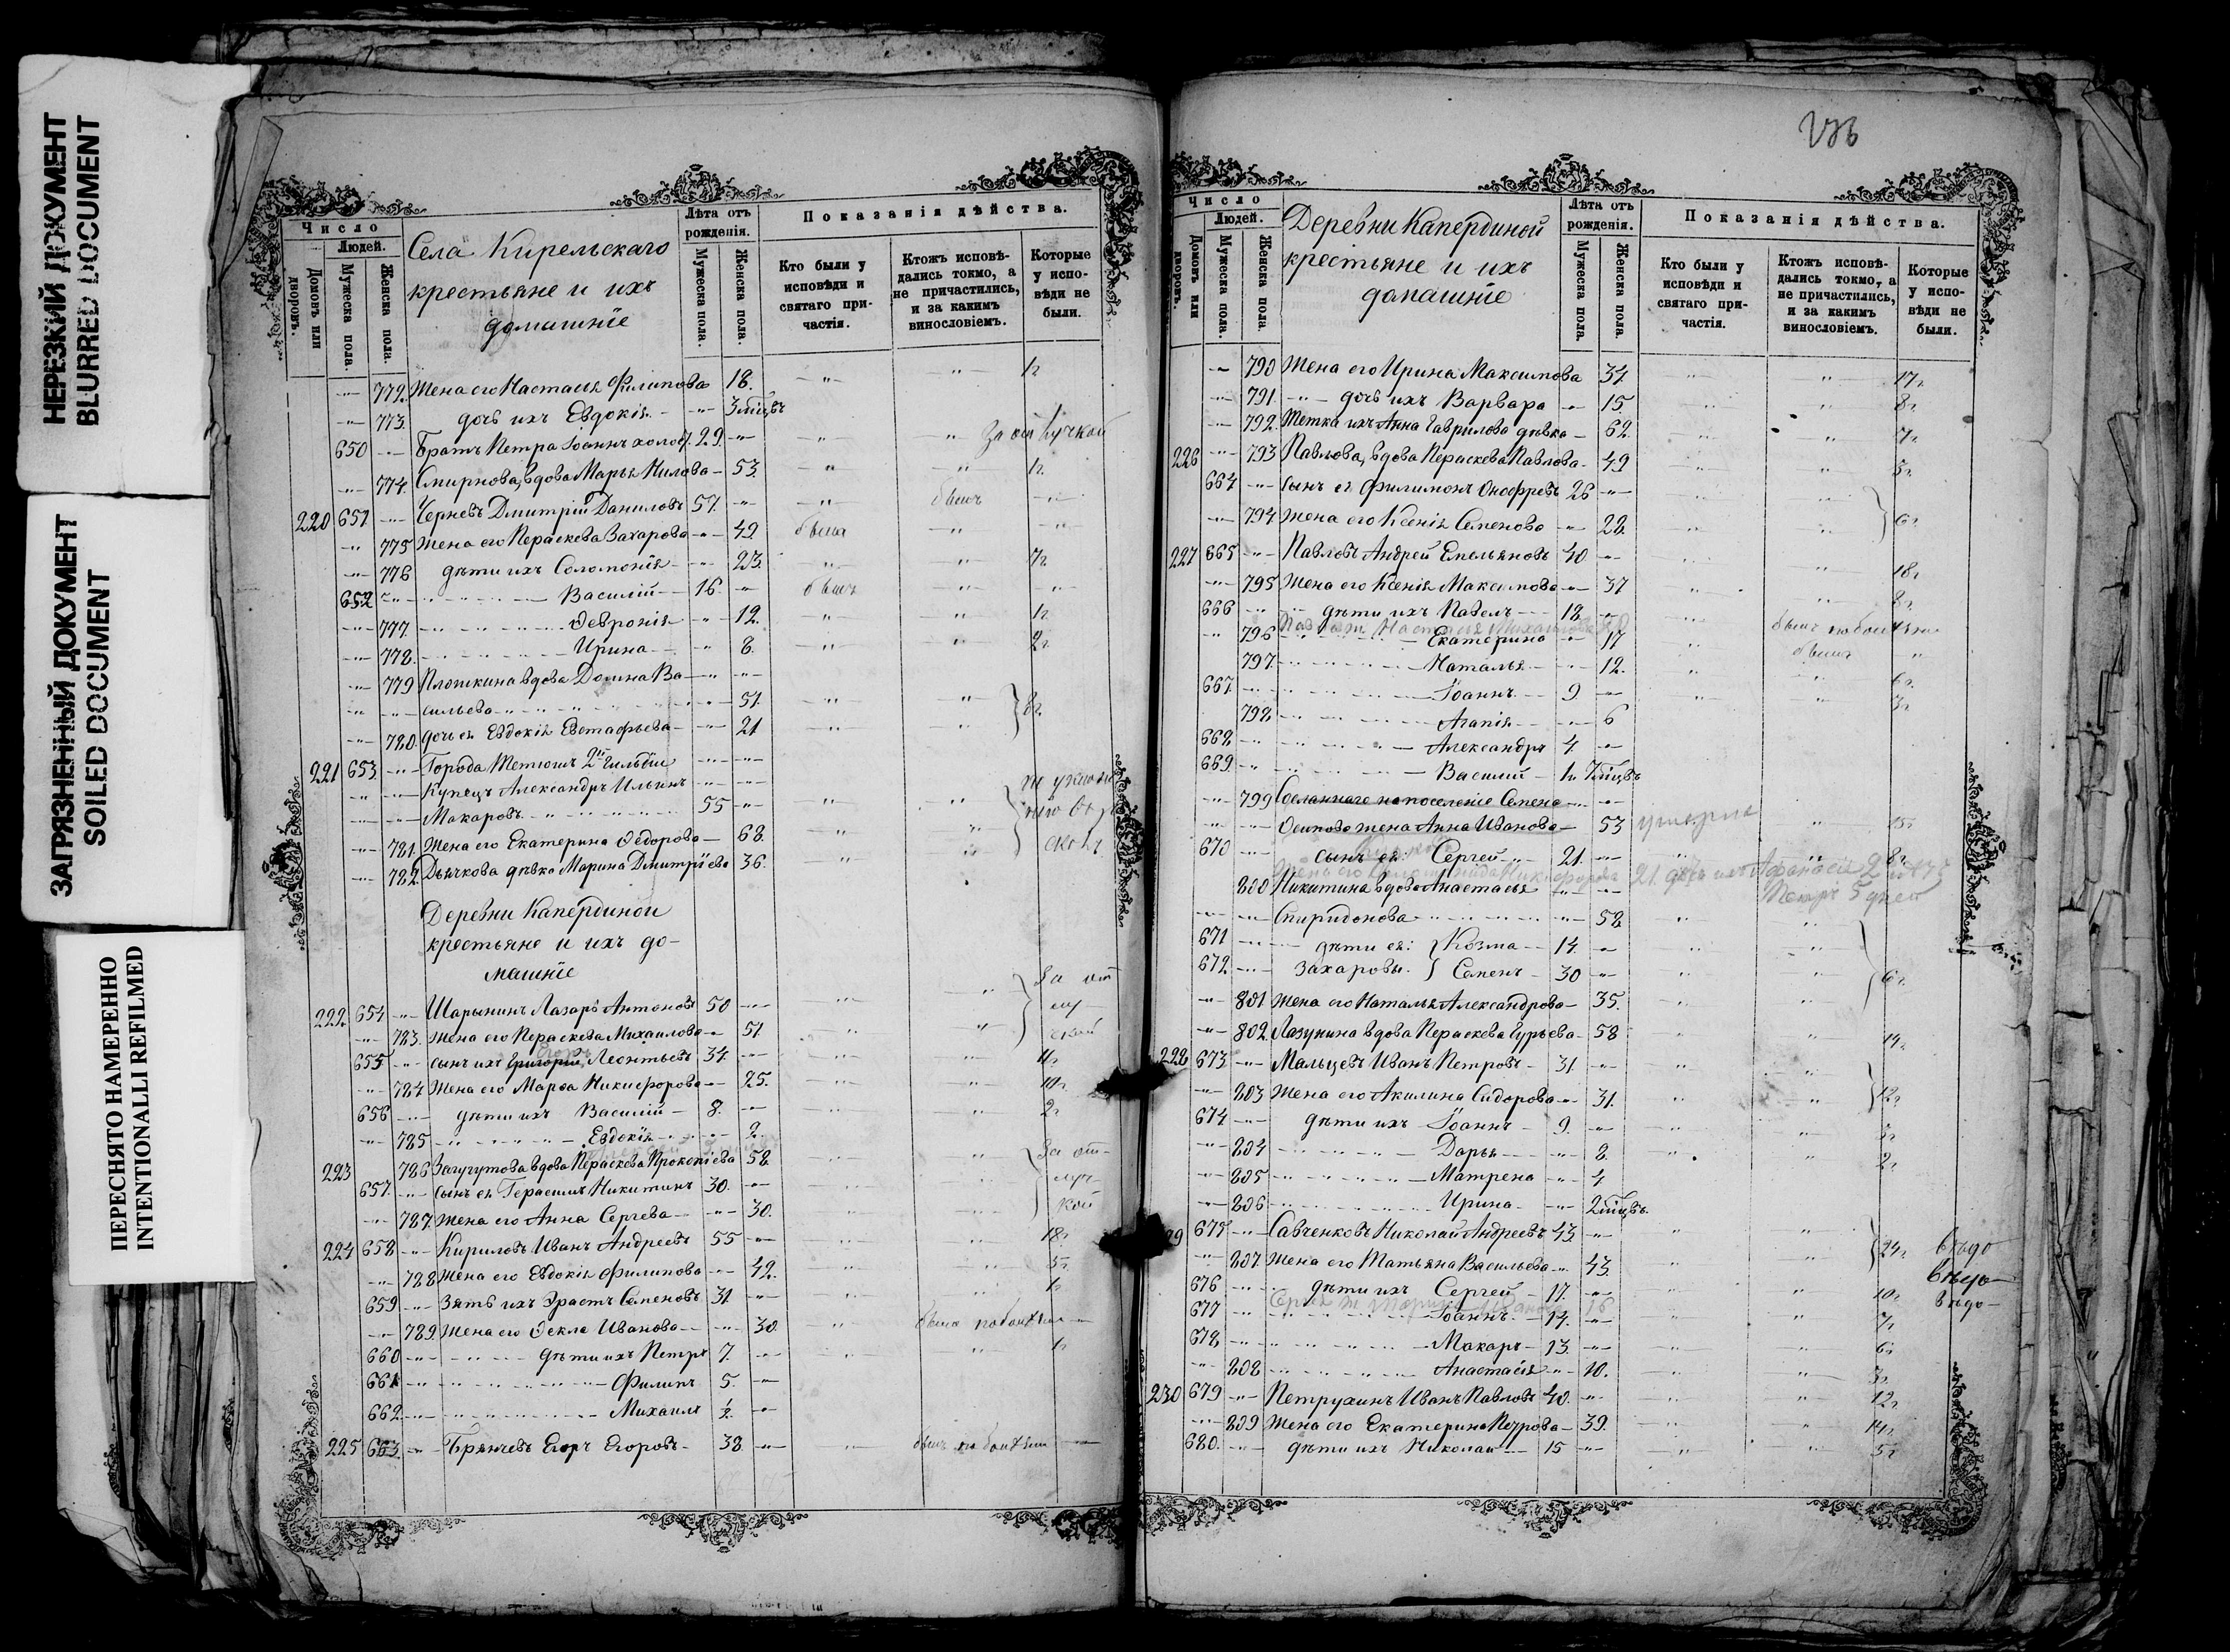 НЕРЕЗКИЙ ДОКУМЕНТ
BLURRED DOCUMENT
ЗАГРЯЗНЕННЫЙ ДОКУМЕНТ
SOILED DOCUMENT
ПЕРЕСНЯТО НАМЕРЕННО
INTENTIONALLI REFILMED
Число
Людей.
Домовъ или дворовъ.
Мужеска пола.
Женска пола.
Села Кирельскаго
крестьяне и ихъ
домашніе
Лѣта отъ рожденія.
Мужеска пола.
Женска пола.
Показанія дѣйства.
Кто были у исповѣди и святаго причастія.
Ктожъ исповѣдались токмо, а не причастились, и за какимъ винословіемъ.
Которые у исповѣди не были.
772 Жена его Настасья Филипова 18. 1г
773. дочь ихъ Евдокія 3 мѣцвъ
650 Братъ Петра Іоаннъ холос. 29. За отлучкой
774. Смирнова, вдова Марья Нилова 53. 1г
220 651 Черневъ Дмитрій Даниловъ 57. былъ
775 Жена его Пераскева Захарова 49. была
776 дѣти ихъ Соломонія 23. 7г
652 Василій 16. былъ
777. Февронія 12. 1г
778. Ирина 8. 2г
779 Плоткина вдова Домна Ва-
сильева 51.
780. дочь ея Евдокія Евстафьева 21
221 653 Города Тетюшъ 2й гильдіи
Купецъ Александръ Ильинъ
Макаровъ 55
781. Жена его Екатерина Ѳедорова 68.
782. Дьячкова дѣвка Марина Дмитріева 36.
Деревни Капердиной
крестьяне и ихъ до-
машніе
222. 654 Шарынинъ Лазарь Антоновъ 50 За от
783. Жена его Пераскева Михаилова 51
655 сынъ ихъ Григорій Леонтьевъ 34.
784 Жена его Марѳа Никифорова 25. 10г
656 дѣти ихъ Василій 8. 2г
785 Евдокія 2
223 786 Загугутова вдова Пераскева Прокопіева 58 За от-
657. сынъ ея Герасимъ Никитинъ 30. луч-
787. Жена его Анна Сергева 30. кой
224 658 Кириловъ Иванъ Андреевъ 55 18г
788 Жена его Евдокія Филипова 49. 5г
659 Зять ихъ Эрастъ Семеновъ 31. 1г
789. Жена его Ѳекла Иванова 30. была
660 дѣти ихъ Петръ 7. 1г
661 Филипъ 5.
662. Михаилъ ½
225 663 Брянчевъ Егоръ Егоровъ 38 былъ
Число
Людей.
Домовъ или дворовъ.
Мужеска пола.
Женска пола.
Деревни Капердиной
крестьяне и ихъ
домашніе
Лѣта отъ рожденія.
Мужеска пола.
Женска пола.
Показанія дѣйства.
Кто были у исповѣди и святаго причастія.
Ктожъ исповѣдались токмо, а не причастились, и за какимъ винословіемъ.
Которые у исповѣди не были.
790 Жена его Ирина Максимова 34. 17г
791. дочь ихъ Варвара 15. 8г
792. Тетка ихъ Анна Гаврилова дѣвка 62. 7г
226 793 Павлова, вдова Пераскева Павлова 49 3г
664 сынъ ея Филимонъ Онофревъ 26
794 Жена его Ксенія Семенова 22. 6г
227 665 Павловъ Андрей Емельяновъ 40
795 Жена его Ксенія Максимова 37 18г
666 дѣти ихъ Павелъ 18 8г
796 Екатерина 17 былъ
797. Наталья 12.
667. Іоаннъ 9
798 Агапія 6
668 Александръ 4
669. Василій
799 Сосланнаго на поселеніе Семена
Осипова жена Анна Иванова 53 умерла
670 сынъ ея: Сергей 21. 8г
800 Никитина вдова Анастасья
Спиридонова 58
671 дѣти ея: Козма 14.
672 Захаровы. Семенъ 30 6г
801 Жена его Наталья Александрова 35.
802. Лазунина вдова Пераскева Гурьева 58
228 673 Мальцевъ Иванъ Петровъ 31
803 Жена его Акилина Сидорова 31. 12г
674 дѣти ихъ Іоаннъ 9. 3г
804 Дарья 8. 2г
805 Матрена 4
806 Ирина 2 мѣцвъ.
675 Савченковъ Николай Андреевъ 43.
807. Жена его Татьяна Васильева 43 24г
676 дѣти ихъ Сергей 17. 10г
677 Іоаннъ 14. 7г
678 Макаръ 13. 6г
808 Анастасія 10. 3г
230 679 Петрухинъ Иванъ Павловъ 40. 12г
809 Жена его Екатерина Петрова 39. 14г
680. дѣти ихъ Николай 15 5г